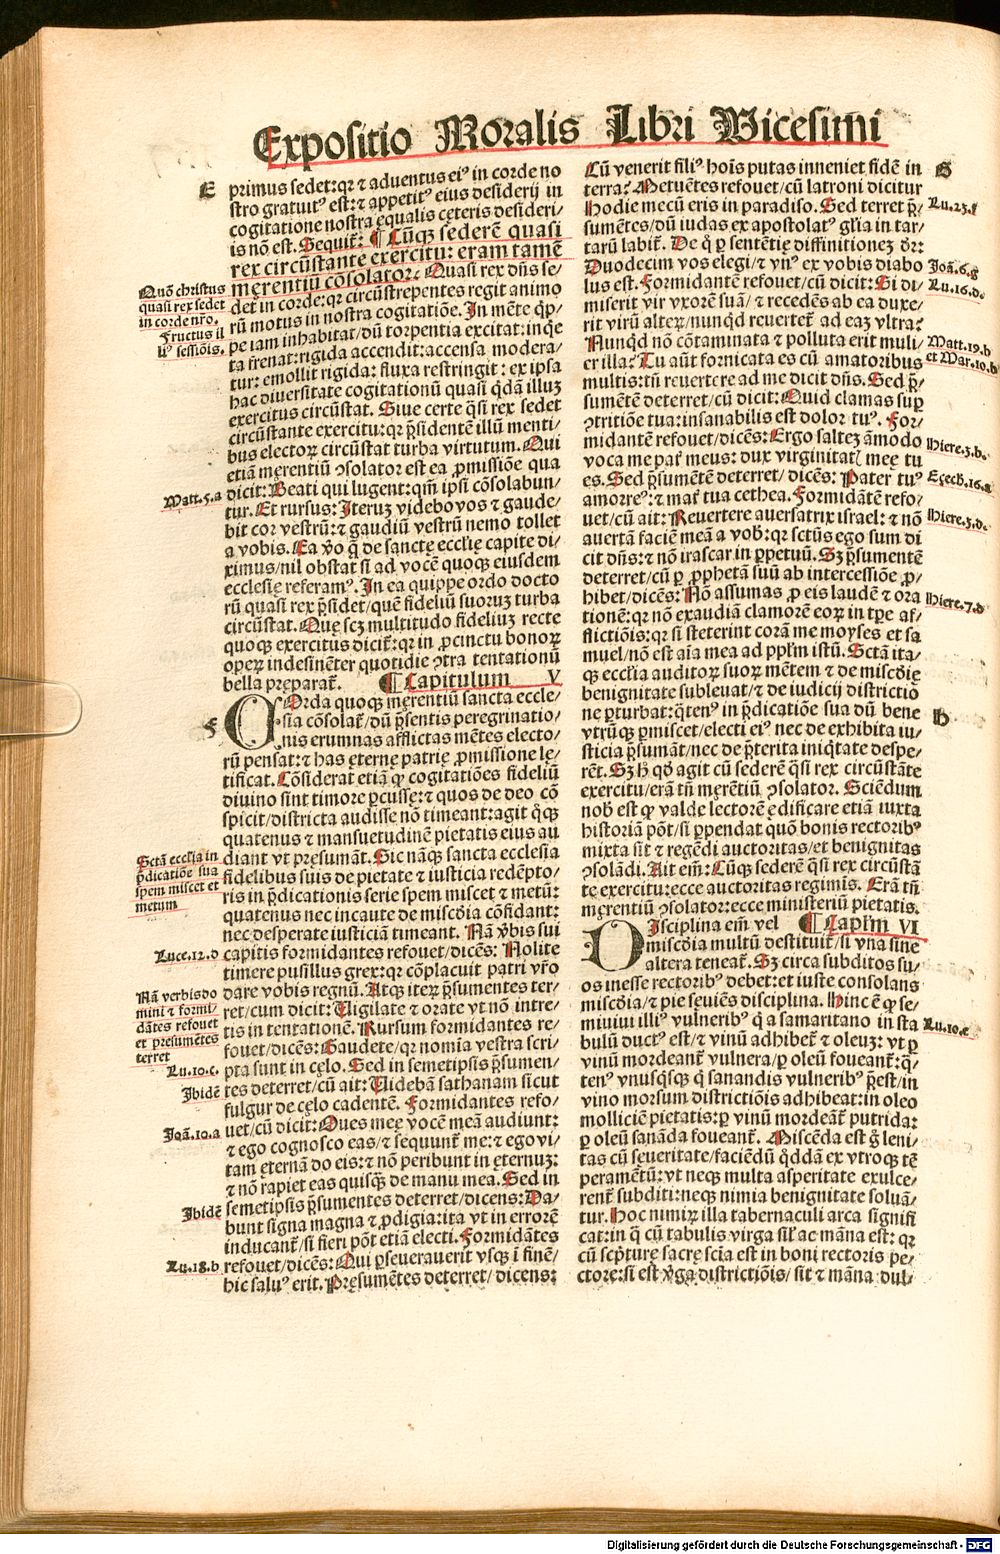 Expositio Moralis Libri Vicesimi
E
primus sedet: qꝛ ⁊ aduentus eiꝰ in corde no
stro gratuitꝰ est: ⁊ appetitꝰ eius desiderij in
cogitatione nostra ęqualis cęteris desideri/
is nō est. Sequit̃: ¶ Cūqꝫ sederē quasi
rex circūstante exercitu: eram tamē
męrentiū cōsolator. Quasi rex dn̄s se/
det in corde: qꝛ circūstrepentes regit animo
rū motus in nostra cogitatiōe. In mēte q̄ꝑ/
pe iam inhabitat/ dū torpentia excitat: inq̇e
ta frenat: rigida accendit: accensa modera/
tur: emollit rigida: fluxa restringit: ex ipsa
hac diuersitate cogitationū quasi q̇dā illuꝫ
exercitus circūstat. Siue certe q̄si rex sedet
circūstante exercitu: qꝛ p̄sidentē illū menti/
bus electoꝝ circūstat turba virtutum. Qui
etiā męrentiū ꝯsolator est ea ꝓmissiōe qua
dicit: Beati qui lugent: qm̄ ipsi cōsolabun/
tur. Et rursus: Iteruꝫ videbo vos ⁊ gaude/
bit cor vestrū: ⁊ gaudiū vestrū nemo tollet
a vobis. Ea v̄o q̄ de sanctę eccl̄ię capite di/
ximus/ nil obstat si ad vocē quoqꝫ eiusdem
ecclesię referamꝰ. In ea quippe ordo docto
rū quasi rex p̄sidet/ quē fideliū suoruꝫ turba
circūstat. Quę scꝫ multitudo fideliuꝫ recte
quoqꝫ exercitus dicit̃: qꝛ in ꝓcinctu bonoꝝ
opeꝝ indesinēter quotidie ꝯtra tentationū
bella pręparat̃. ¶ Capitulum V
COrda quoqꝫ męrentiū sancta eccle/
sia cōsolat̃/ dū p̄sentis peregrinatio/
nis erumnas afflictas mētes electo/
rū pensat: ⁊ has ęternę patrię ꝓmissione lę/
tificat. Cōsiderat etiā ꝙ cogitatiōes fideliū
diuino sint timore ꝑcussę: ⁊ quos de deo cō
spicit/ districta audisse nō timeant: agit q̇qꝫ
quatenus ⁊ mansuetudinē pietatis eius au
diant vt pręsumāt. Sic nāqꝫ sancta ecclesia
fidelibus suis de pietate ⁊ iusticia redēpto/
ris in p̄dicationis serie spem miscet ⁊ metū:
quatenus nec incaute de mis̄cd̄ia cōfidant:
nec desperate iusticiā timeant. Nā v̄bis sui
capitis formidantes refouet/ dicēs: Nolite
timere pusillus grex: qꝛ cōplacuit patri vr̄o
dare vobis regnū. Atqꝫ iteꝝ p̄sumentes ter/
ret/ cum dicit: Uigilate ⁊ orate vt nō intre/
tis in tentationē. Rursum formidantes re/
fouet/ dicēs: Gaudete/ qꝛ nomīa vestra scri/
pta sunt in cęlo. Sed in semetipsis p̄sumen/
tes deterret/ cū ait: Uidebā sathanam sicut
fulgur de cęlo cadentē. Formidantes refo/
uet/ cū dicit: Oues męę vocē meā audiunt:
⁊ ego cognosco eas/ ⁊ sequunt̃ me: ⁊ ego vi/
tam ęternā do eis: ⁊ nō peribunt in ęternuꝫ:
⁊ nō rapiet eas quisqꝫ de manu mea. Sed in
semetipsis p̄sumentes deterret/ dicens: Da/
bunt signa magna ⁊ ꝓdigia: ita vt in errorē
inducant̃/ si fieri pōt etiā electi. Formidātes
refouet/ dicēs: Qui ꝑseuerauerit vsqꝫ ī finē/
hic saluꝰ erit. Pręsumētes deterret/ dicens:
Quō christus
quasi rex sedet
in corde nr̄o.
Fructus il
liꝰ sessiōis.
Matt.5.a
F
Sctā eccl̄ia in
p̄dicatiōe sua
spem miscet et
metum
Luce.12.d
Nā verbis do
mini ⁊ formi/
dātes refouet
et presumētes
terret
Lu.10.c.
Ibidē
Joā.10.a
Ibidē
Lu.18.b
Cū venerit filiꝰ hoīs putas inueniet fidē in
terra? Metuētes refouet/ cū latroni dicitur
Hodie mecū eris in paradiso. Sed terret p̄/
sumētes/ dū iudas ex apostolatꝰ gl̄ia in tar/
tarū labit̃. De q̊ ꝑ sententię diffinitionez dr̄:
Duodecim vos elegi/ ⁊ vnꝰ ex vobis diabo
lus est. Formidantē refouet/ cū dicit: Si di/
miserit vir vxorē suā/ ⁊ recedēs ab ea duxe/
rit virū alteꝝ/ nunq̇d reuertet̃ ad eaꝫ vltra?
Nunq̇d nō cōtaminata ⁊ polluta erit muli/
er illa? Tu aūt fornicata es cū amatoribus
multis: tn̄ reuertere ad me dicit dn̄s. Sed p̄/
sumētē deterret/ cū dicit: Quid clamas suꝑ
ꝯtritiōe tua: insanabilis est dolor tuꝰ. For/
midantē refouet/ dicēs: Ergo salteꝫ āmodo
voca me pat̃ meus: dux virginitatꝭ męę tu
es. Sed p̄sumētē deterret/ dicēs: Pater tuꝰ
amorreꝰ: ⁊ mat̃ tua cethea. Formidātē refo/
uet/ cū ait: Reuertere auersatrix israel: ⁊ nō
auertā faciē meā a vob̄: qꝛ sctūs ego sum di
cit dn̄s: ⁊ nō irascar in ꝑpetuū. Sꝫ p̄sumentē
deterret/ cū ꝑ ꝓphetā suū ab intercessiōe ꝓ/
hibet/ dicēs: Nō assumas ꝓ eis laudē ⁊ ora
tionē: qꝛ nō exaudiā clamorē eoꝝ in tꝑe af/
flictiōis: qꝛ si steterint corā me moyses et sa
muel/ nō est aīa mea ad pp̄lm istū. Sctā ita/
qꝫ eccl̄ia auditoꝝ suoꝝ mētem ⁊ de mis̄cd̄ię
benignitate subleuat/ ⁊ de iudicij districtiō
ne ꝑturbat: q̄tenꝰ in p̄dicatiōe sua dū bene
vtrūqꝫ ꝑmiscet/ electi eiꝰ nec de exhibita iu/
sticia p̄sumāt/ nec de p̄terita iniq̇tate despe/
rēt. Sꝫ h̄ q̊d agit cū sederē q̄si rex circūstāte
exercitu/ erā tn̄ męrētiū ꝯsolator. Sciēdum
nob̄ est ꝙ valde lectorē ędificare etiā iuxta
historiā pōt/ si ꝑpendat quō bonis rectoribꝰ
mixta sit ⁊ regēdi auctoritas/ et benignitas
ꝯsolādi. Ait em̄: Cūqꝫ sederē q̄si rex circūstā
te exercitu: ecce auctoritas regimis. Erā tn̄
męrentiū ꝯsolator: ecce ministeriū pietatis.
DIsciplina em̄ vel ¶ Capl̄m VI
mis̄cd̄ia multū destituit̃/ si vna sine
altera teneat̃. Sꝫ circa subditos su/
os inesse rectoribꝰ debet: et iuste consolans
mis̄cd̄ia/ ⁊ pie seuiēs disciplina. Hinc ē ꝙ se/
miuiui illiꝰ vulneribꝰ q̇ a samaritano in sta
bulū ductꝰ est/ ⁊ vinū adhibet̃ ⁊ oleuꝫ: vt ꝑ
vinū mordeant̃ vulnera/ ꝑ oleū foueant̃: q̄/
tenꝰ vnusq̇sqꝫ q̇ sanandis vulneribꝰ p̄est/ in
vino morsum districtiōis adhibeat: in oleo
molliciē pietatis: ꝑ vinū mordeāt̃ putrida:
ꝑ oleū sanāda foueant̃. Miscēda est g̊ leni/
tas cū seueritate/ faciēdū q̊ddā ex vtroqꝫ tē
peramētū: vt neqꝫ multa asperitate exulce/
rent̃ subditi: neqꝫ nimia benignitate soluā/
tur. Hoc nimiꝝ illa tabernaculi arca signifi
cat: in q̄ cū tabulis virga sil̄ ac māna est: qꝛ
cū scp̄turę sacrę scīa est in boni rectoris pe/
ctore: si est v̄ga districtiōis/ sit ⁊ māna dul/
G
Lu.23.f
Joā.6.g
Lu.16.d.
Matt.19.b
et Mar.10.b
Hiere.3.b.
Ezech.16.a
Hiere.3.d.
Hiere.7.d
H
Lu.10.e
Digitalisierung gefördert durch die Deutsche Forschungsgemeinschaft - DFG